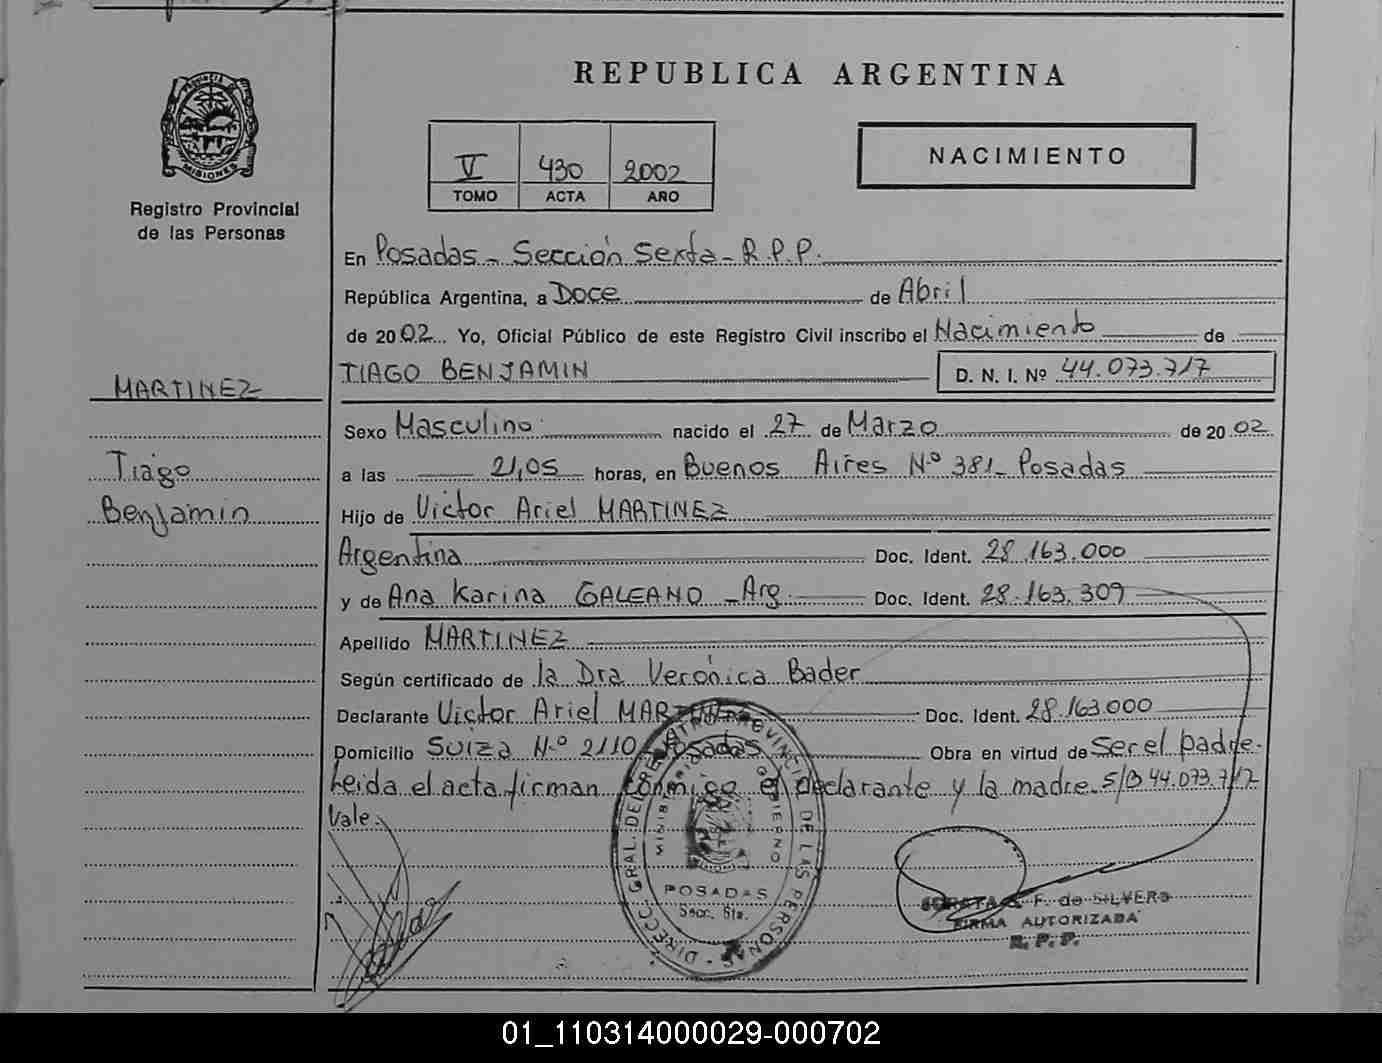 REPUBLICA ARGENTINA
MISIONES
Registro Provincial
de las Personas
V 430 2002
TOMO ACTA AÑO
NACIMIENTO
En Posadas - Sección Sexta - R.P.P.
República Argentina, a Doce de Abril
de 2002 Yo, Oficial Público de este Registro Civil inscribo el Nacimiento de
TIAGO BENJAMIN D. N. I. Nº 44.073.717
MARTINEZ
Sexo Masculino nacido el 27 de Marzo de 2002
Tiago
a las 21,05 horas, en Buenos Aires Nº 381 - Posadas
Benjamin
Hijo de Victor Ariel MARTINEZ
Argentina Doc. Ident. 28.163.000
y de Ana Karina GALEANO - Arg. Doc. Ident. 28.163.309
Apellido MARTINEZ
Según certificado de la Dra Verónica Bader
Declarante Victor Ariel MARTINEZ Doc. Ident. 28.163.000
Domicilio Suiza Nº 2110 Posadas Obra en virtud de Ser el padre.
Leida el acta firman conmigo el declarante y la madre. S/B 44.073.717
Vale.
DIRECC. GRAL. DEL REGISTRO PROVINCIAL DE LAS PERSONAS
MINISTERIO GOBIERNO
POSADAS
Secc. 6ta.
F. de SILVERO
FIRMA AUTORIZADA
R. P. P.
01_110314000029-000702